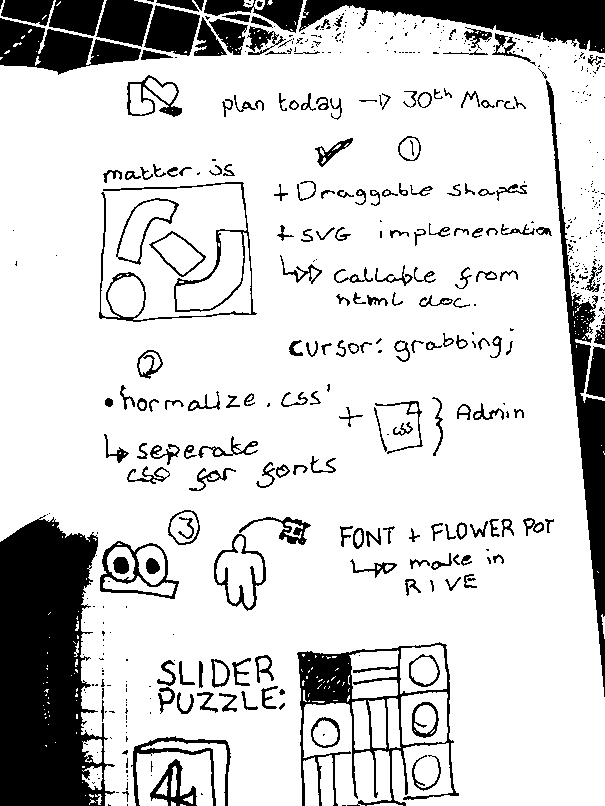 plan today → 30th March
① 
matter.js
+ Draggable shapes
+ SVG implementation
↳ Callable from
html doc.
cursor: grabbing;
②
• 'normalize.css'
↳ seperate
css for fonts
+ .css } Admin
③
FONT + FLOWER POT
↳ make in
RIVE
SLIDER
PUZZLE:
4